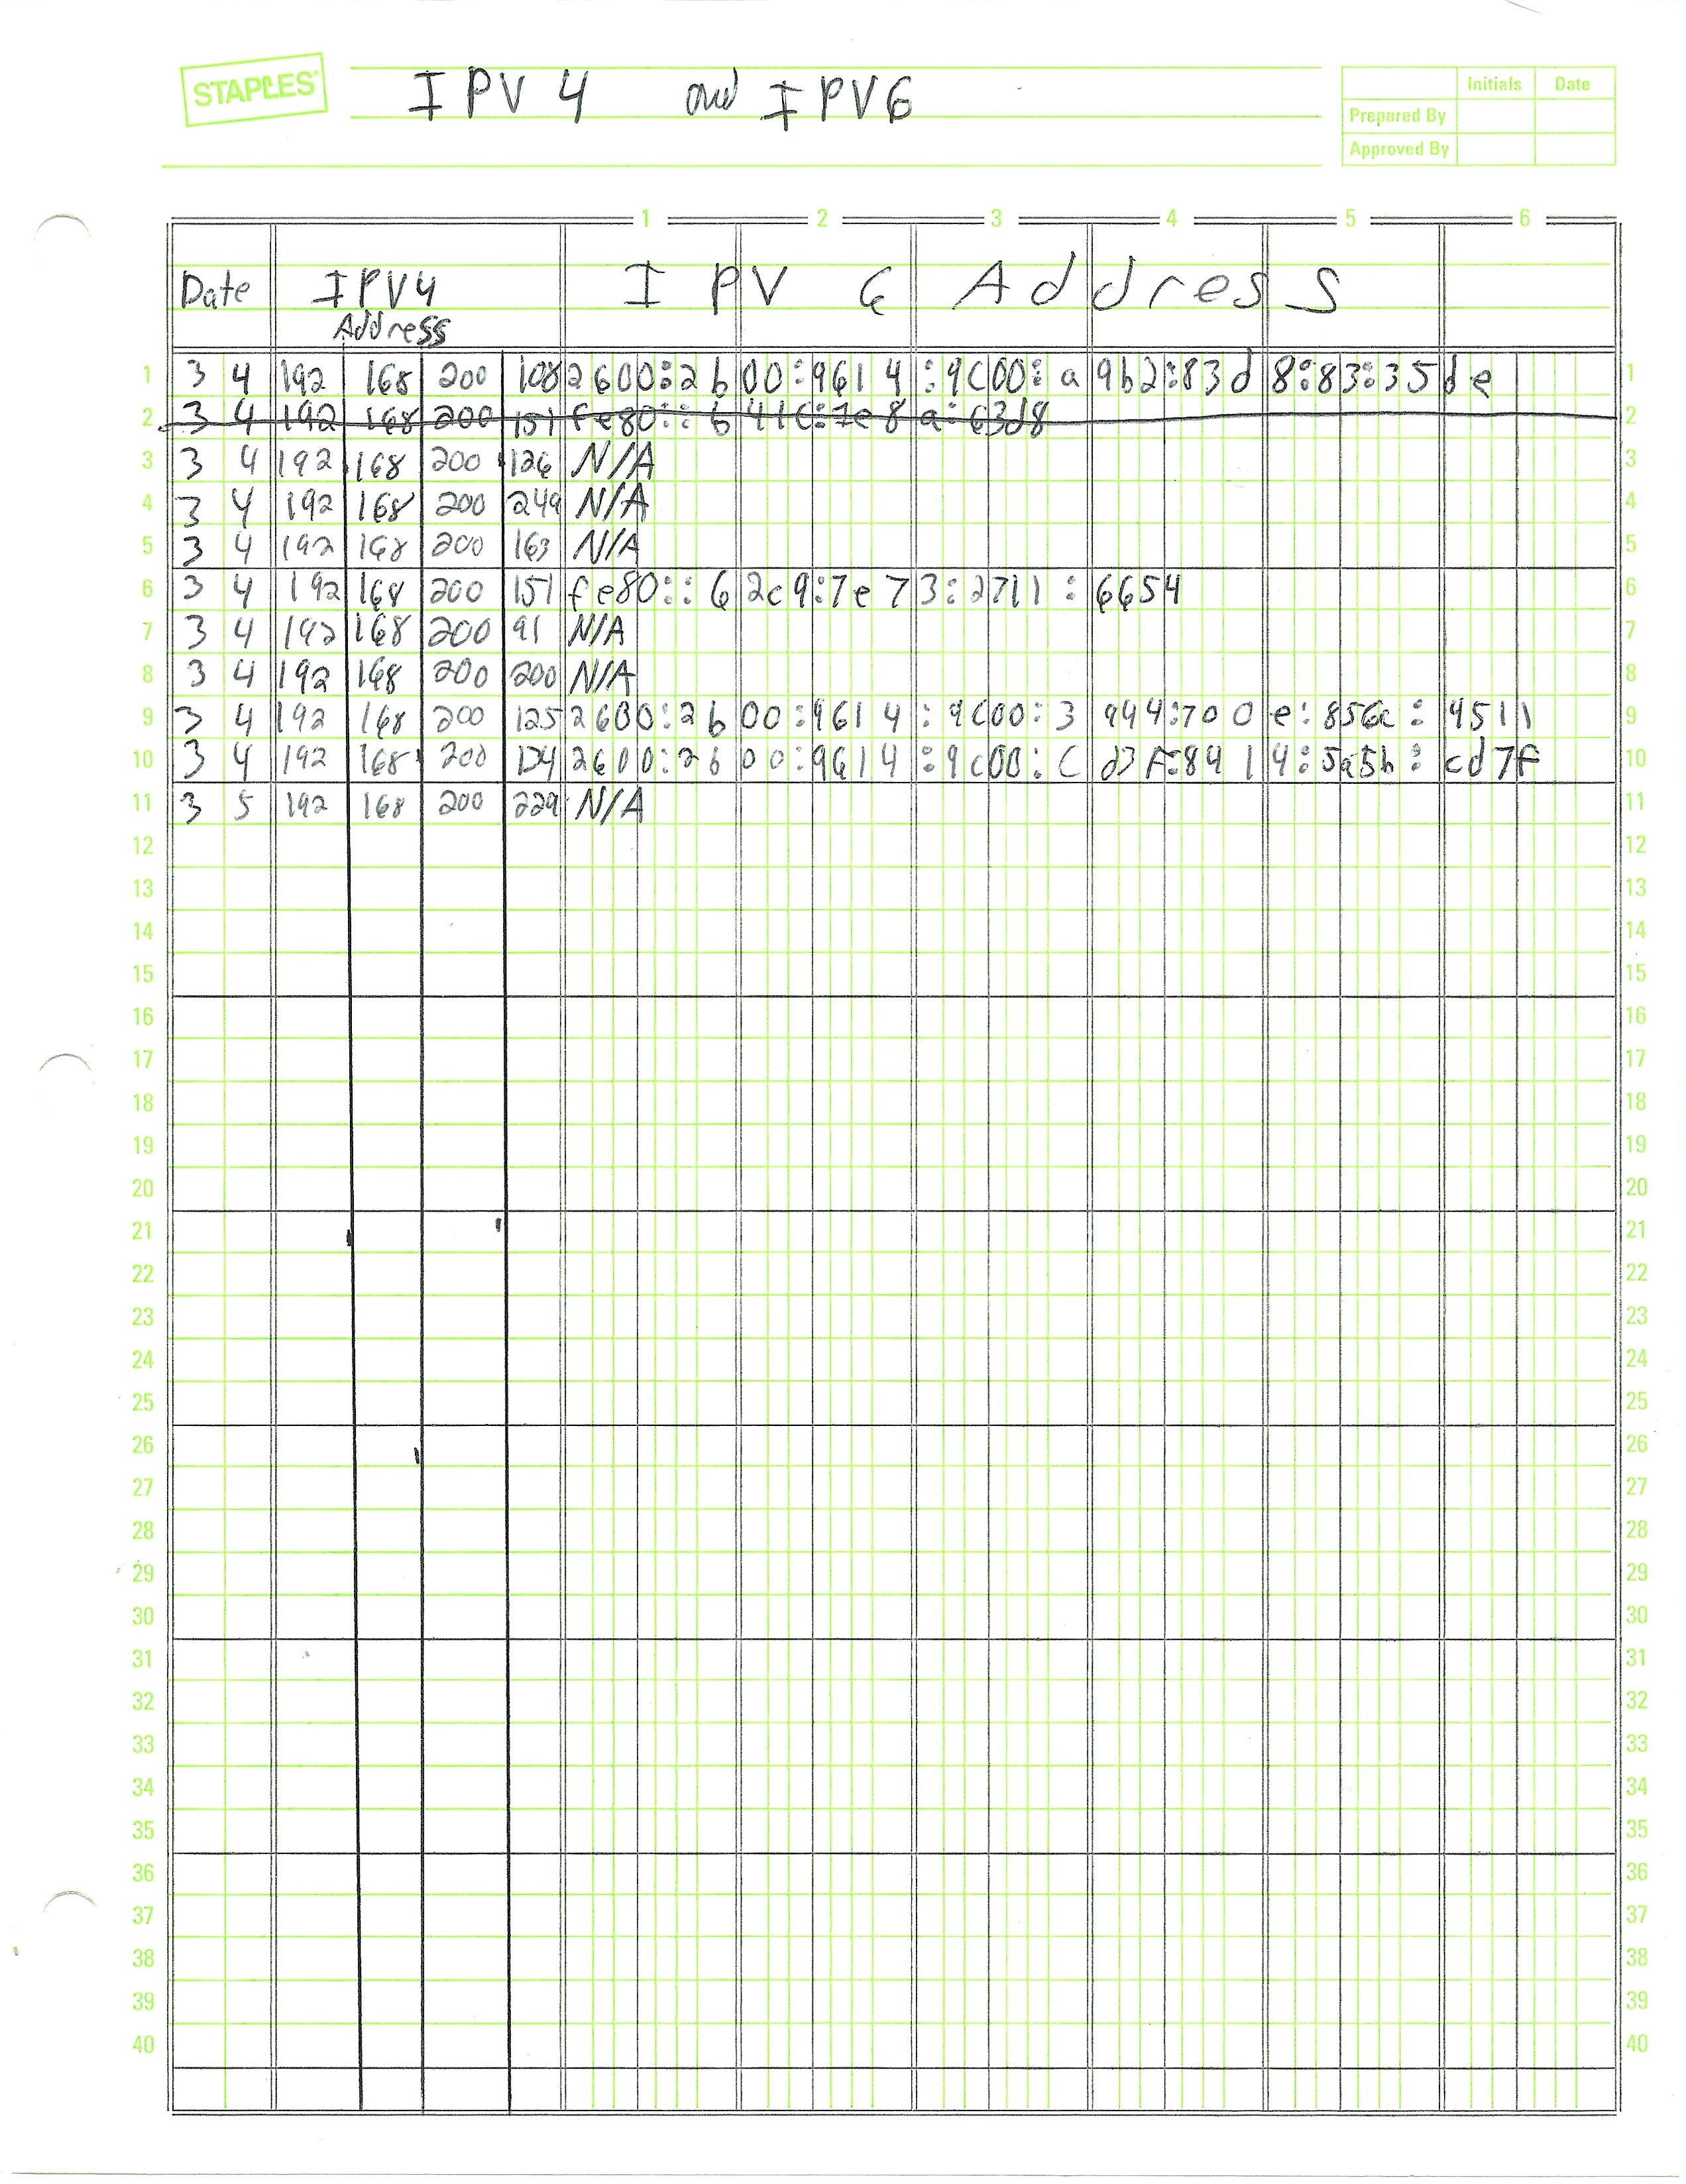 STAPLES
IPV4 and IPV6
Initials Date
Prepared By
Approved By
1 2 3 4 5 6
Date IPV4 Address IPV6 Address
1 3 4 192 168 200 108 2600:2b00:9614:9c00:a9b2:83d8:83:35de 1
2 3 4 192 168 200 151 fe80::641c:7e8a:63d8 2
3 3 4 192 168 200 126 N/A 3
4 3 4 192 168 200 249 N/A 4
5 3 4 192 168 200 163 N/A 5
6 3 4 192 168 200 151 fe80::62c9:7e73:2711:6654 6
7 3 4 192 168 200 91 N/A 7
8 3 4 192 168 200 200 N/A 8
9 3 4 192 168 200 125 2600:2b00:9614:9c00:3944:700e:856c:4511 9
10 3 4 192 168 200 124 2600:2b00:9614:9c00:Cd3F:8414:5a5b:cd7f 10
11 3 5 192 168 200 229 N/A 11
12 12
13 13
14 14
15 15
16 16
17 17
18 18
19 19
20 20
21 21
22 22
23 23
24 24
25 25
26 26
27 27
28 28
29 29
30 30
31 31
32 32
33 33
34 34
35 35
36 36
37 37
38 38
39 39
40 40